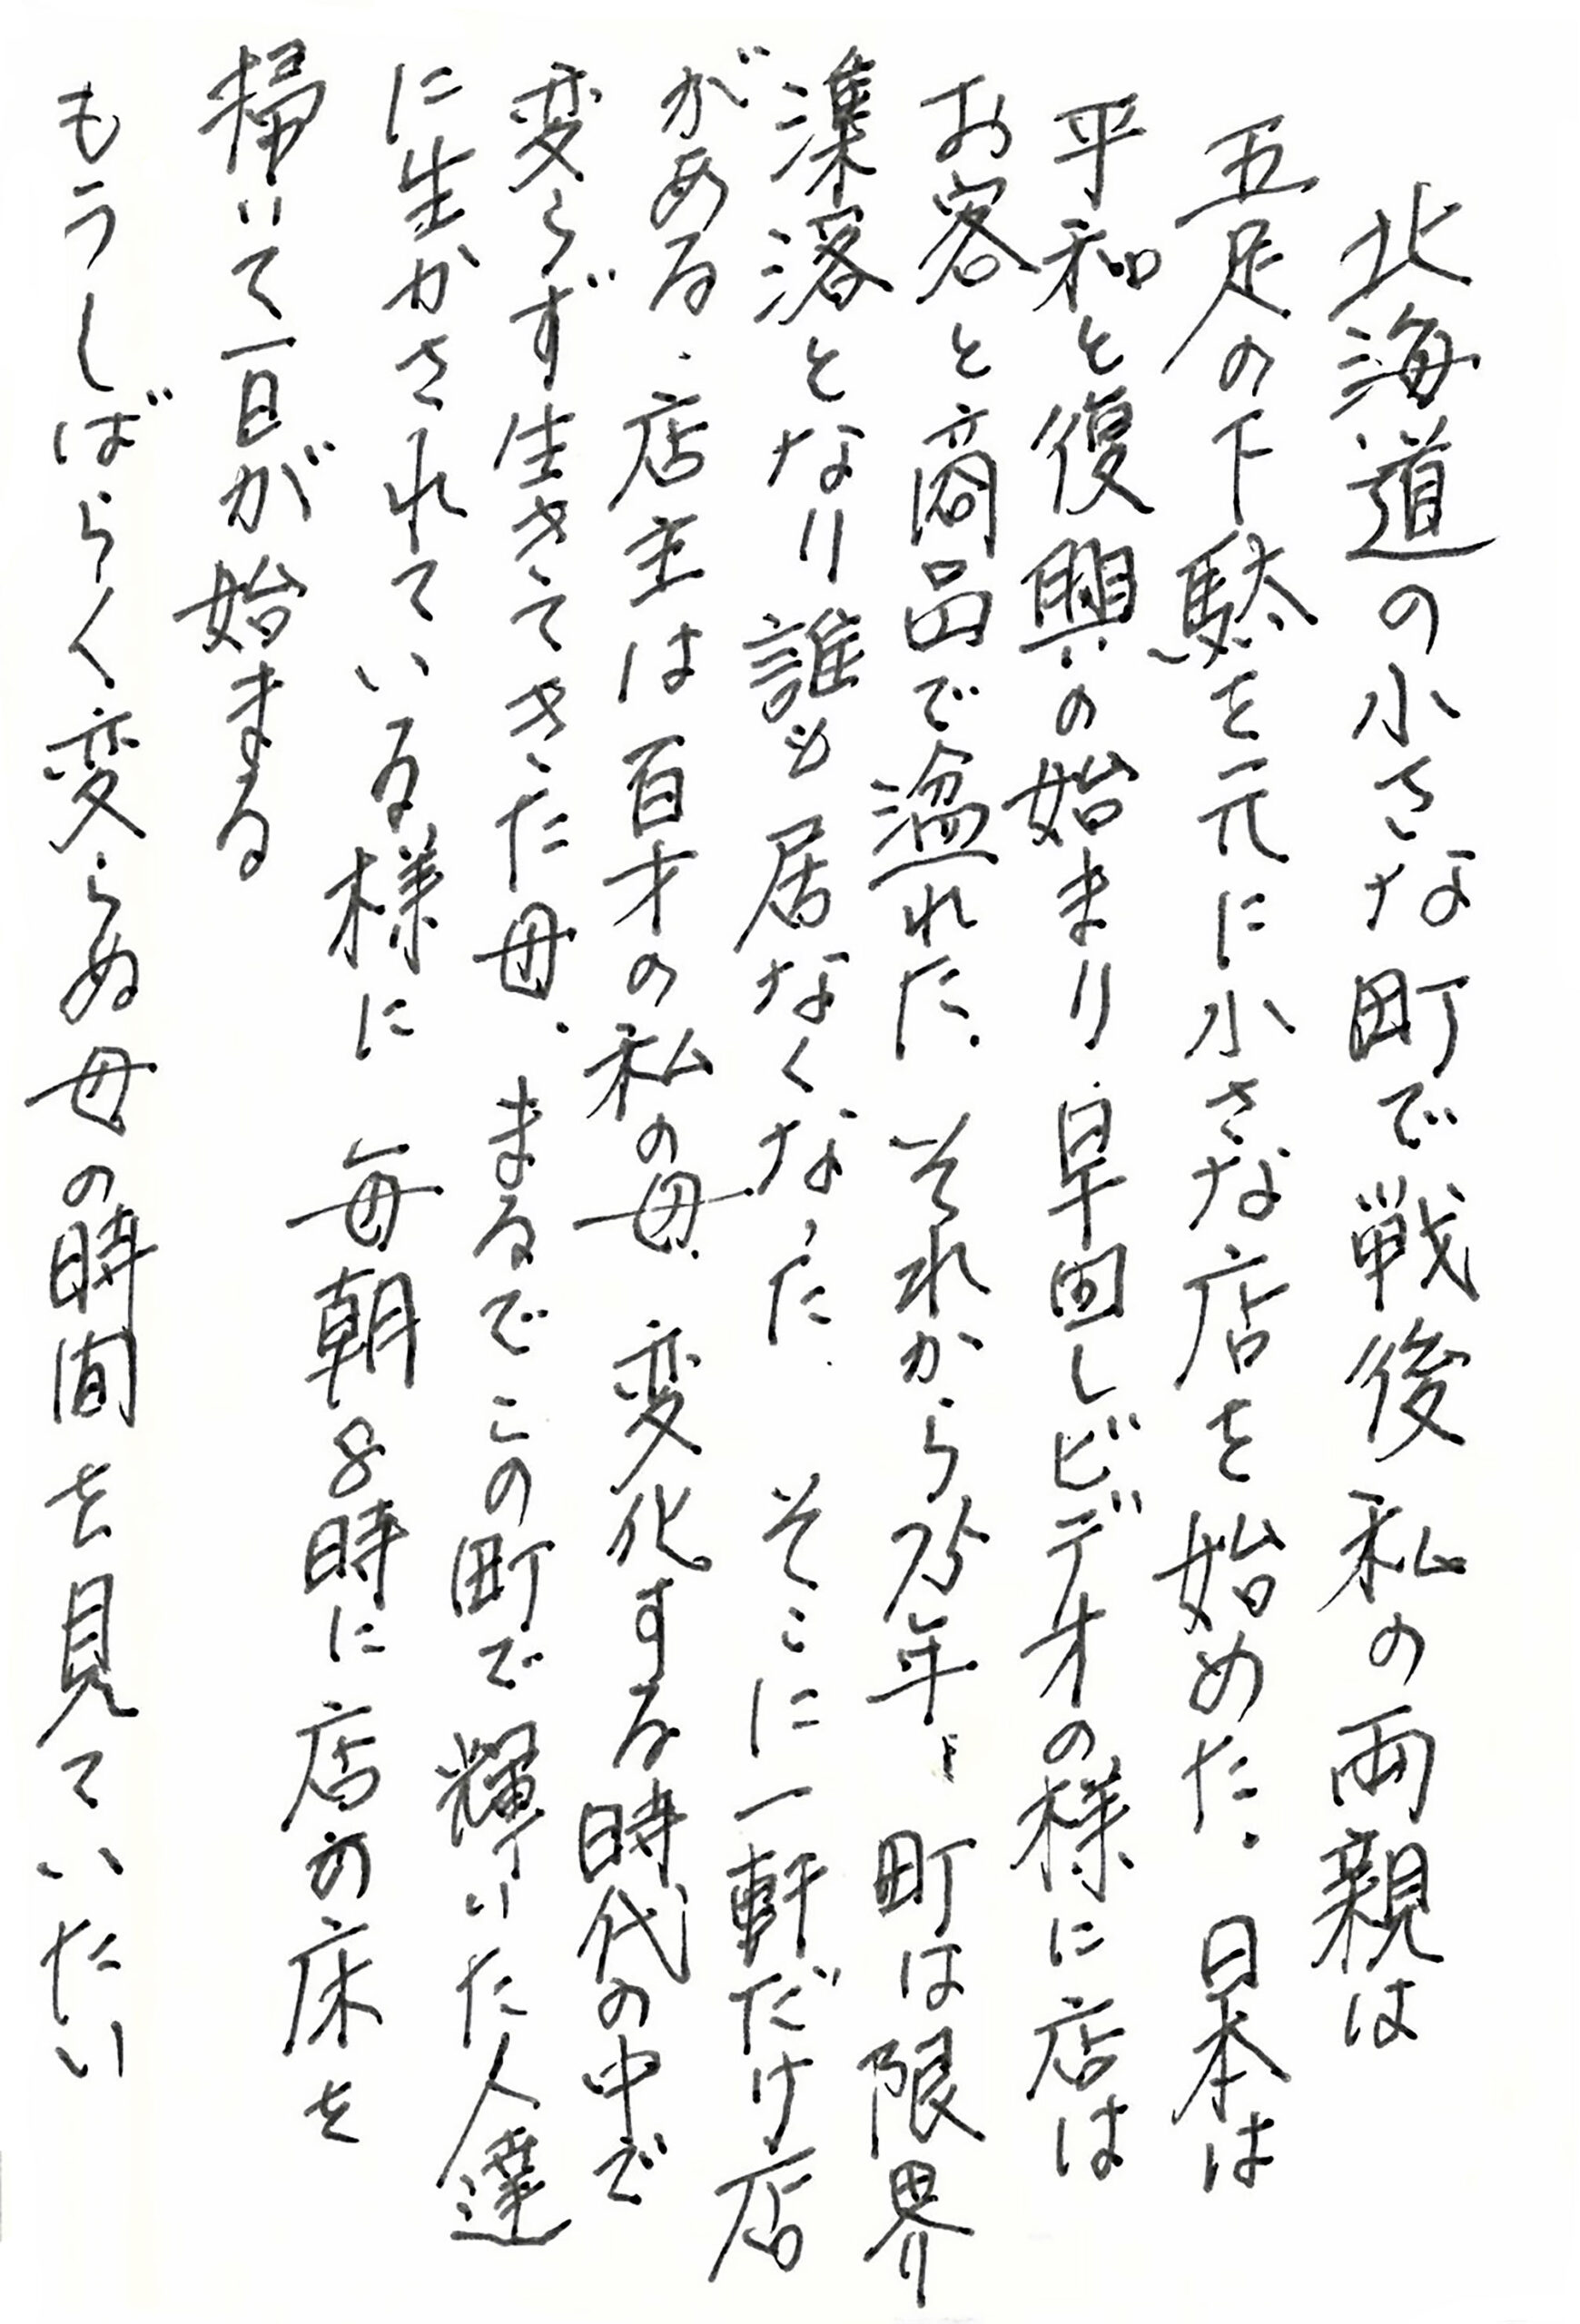 北海道の小さな町で戦後私の両親は
五足の下駄を元に小さな店を始めた。日本は
平和と復興の始まり.早回しビデオの様に店は
お客と商品で溢れた.それから75年、町は限界
集落となり誰も居なくなった.そこに一軒だけ店
がある.店主は百才の私の母.変化する時代の中で
変らず生きてきた母.まるでこの町で輝いた人達
に生かされている様に 毎朝8時に店の床を
掃いて一日が始まる
もうしばらく変らぬ母の時間を見ていたい